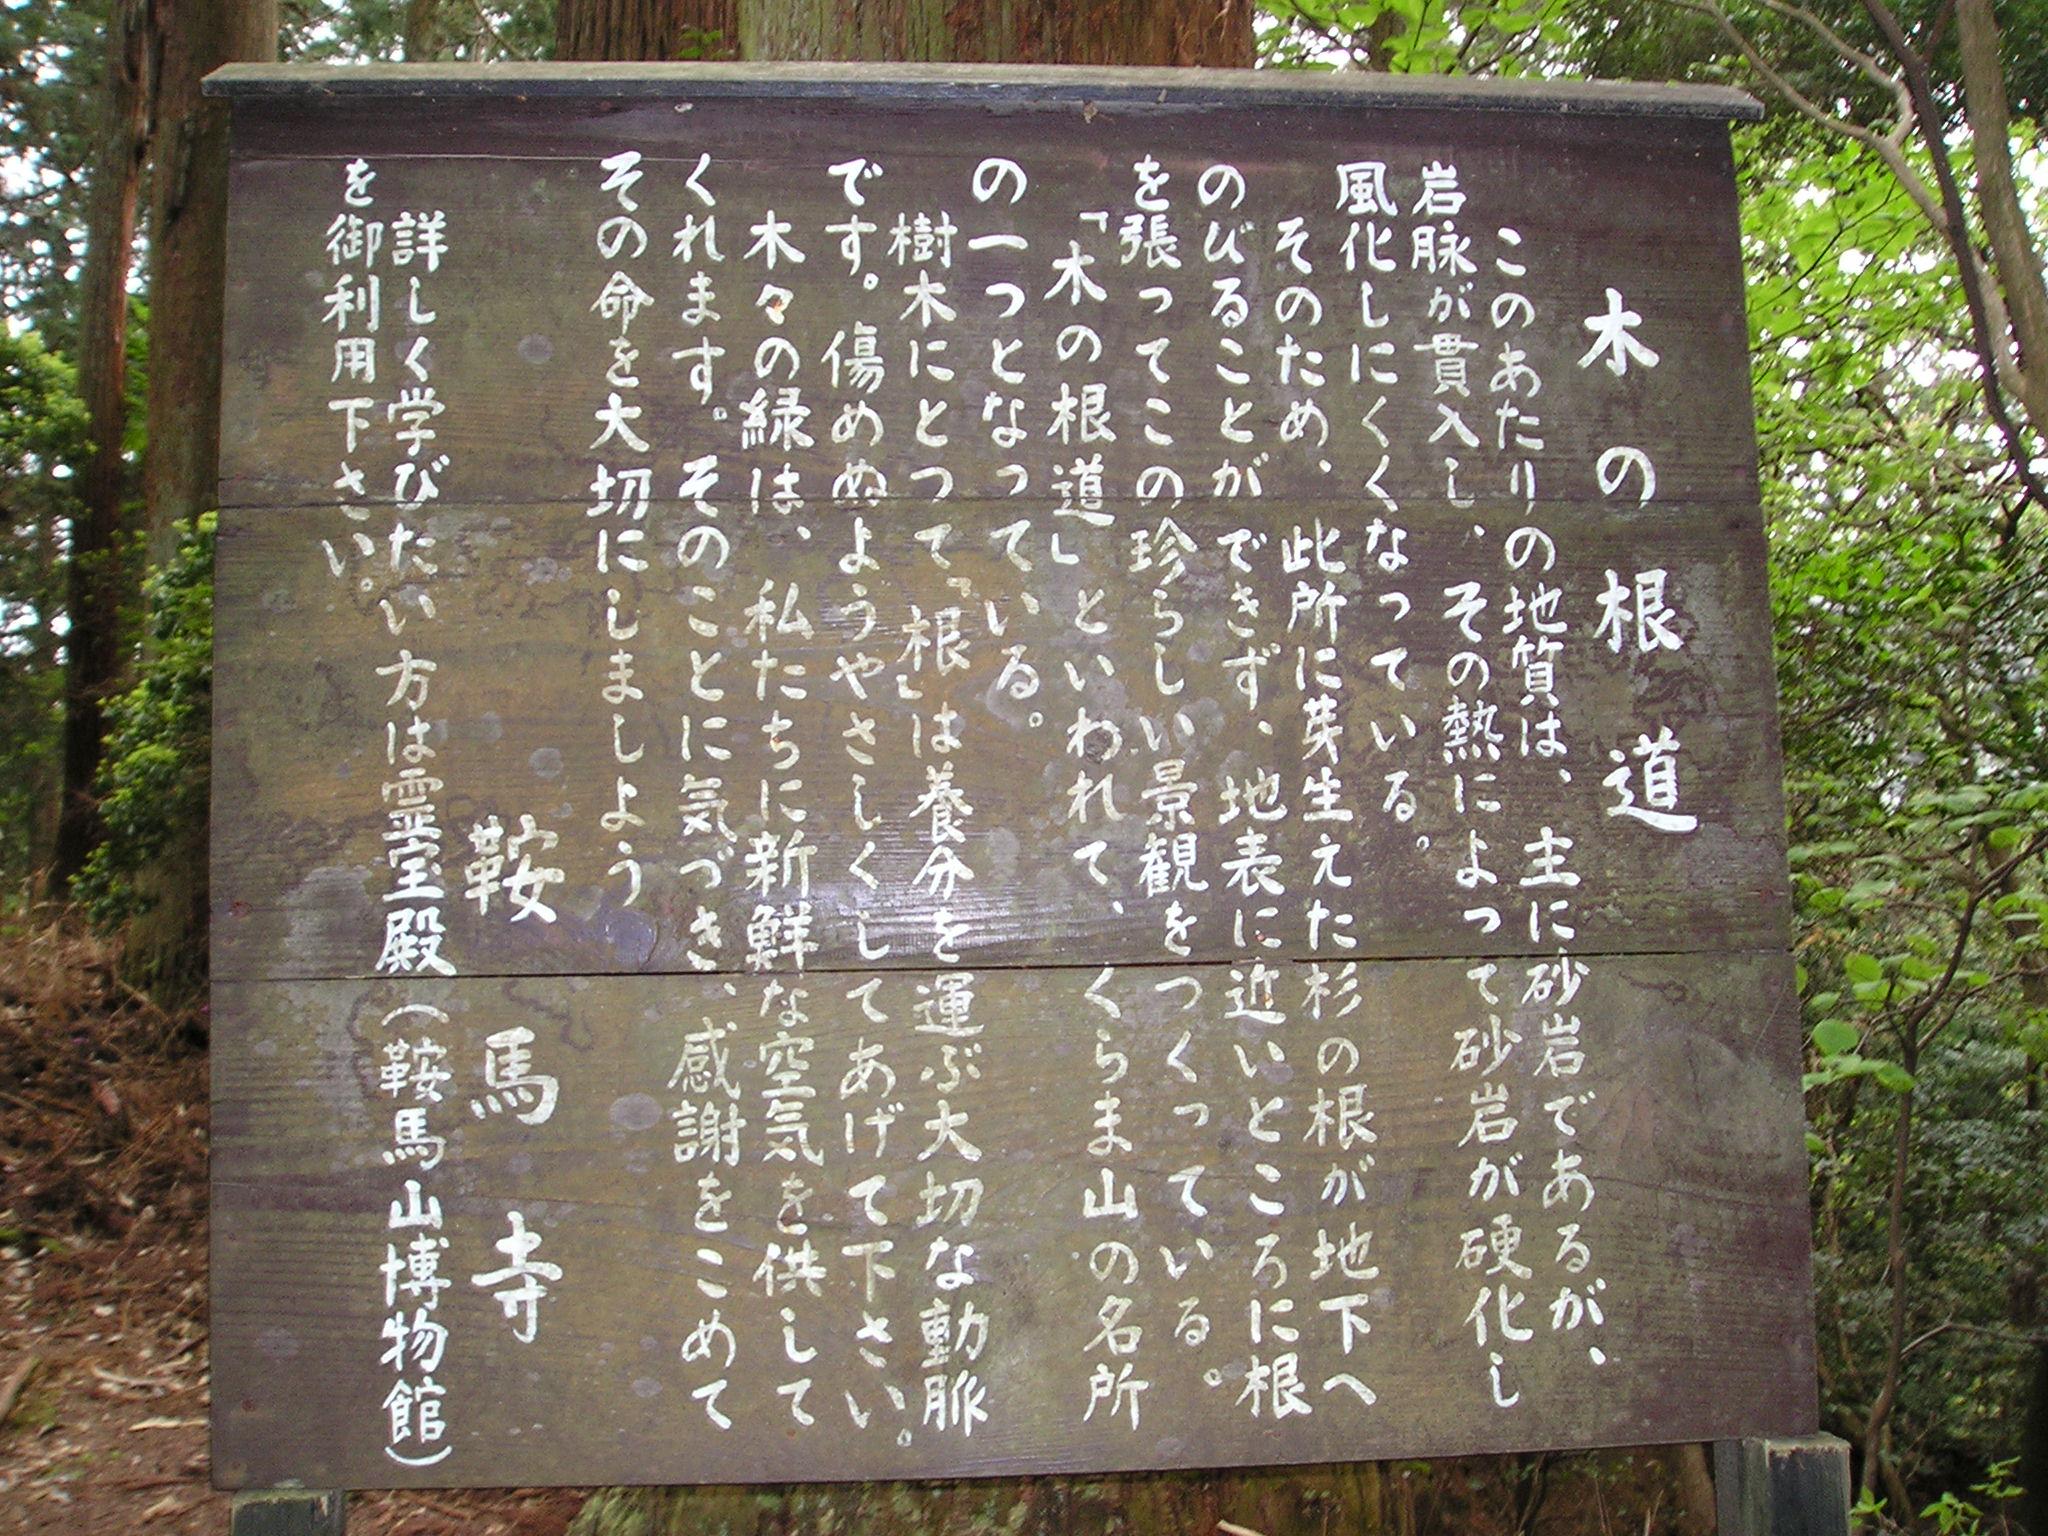 木の根道
このあたりの地質は、主に砂岩であるが、
岩脈が貫入し、その熱によって砂岩が硬化し
風化しにくくなっている。
そのため、此所に芽生えた杉の根が地下へ
のびることができず、地表に近いところに根
を張ってこの珍らしい景観をつくっている。
「木の根道」といわれて、くらま山の名所
の一つとなっている。
樹木にとって「根」は養分を運ぶ大切な動脈
です。傷めぬようやさしくしてあげて下さい。
木々の緑は、私たちに新鮮な空気を供して
くれます。そのことに気づき、感謝をこめて
その命を大切にしましよう
鞍馬寺
詳しく学びたい方は霊宝殿(鞍馬山博物館)
を御利用下さい。